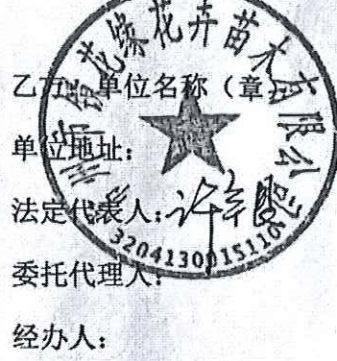 乙方：单位名称（章）
单位地址：
法定代表人：许
委托代理人：
经办人：
州市银花缘花卉苗木有限公司
3204130015110